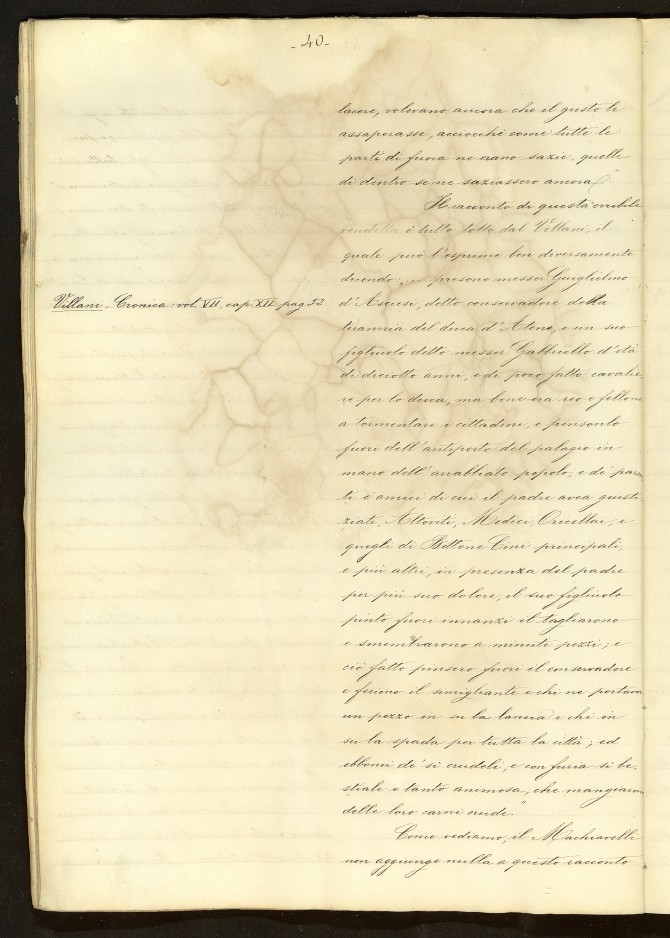 - 40 -
lacere, volevano ancora che il gusto le
assaporasse, acciocché come tutte le
parti di fuora ne erano sazie, quelle
di dentro se ne saziassero ancora."
Il racconto di questa orribile
vendetta è tutto tolto dal Villani, il
quale però l'esprime ben diversamente
dicendo: .... presono messer Guiglielmo
Villani - Cronica: vol. VII, cap. XII pag. 52
d'Ascesi, detto conservadore della
tirannia del duca d'Atene, e un suo
figliuolo detto messer Gabbriello d'età
di diciotto anni, e di poco fatto cavalie
re per lo duca, ma bene era reo e fellone
a tormentare i cittadini, e pinsonlo
fuori dell'antiporto del palagio in
mano dell'arrabbiato popolo, e de' paren
ti e amici di cui il padre avea giusti
ziati, Altoviti, Medici, Oricellai, e
quegli di Bettone Cini principali,
e più altri, in presenza del padre
per più suo dolore, il suo figliuolo
pinto fuori innanzi il tagliarono
e smembrarono a minuti pezzi; e
ciò fatto pinsero fuori il conservadore
e feciono il simigliante e chi ne portava
un pezzo in su la lancia e chi in
su la spada per tutta la città; ed
ebbonvi de' sì crudeli, e con furia sì be-
stiale e tanto animosa, che mangiarono
delle loro carni crude."
Come vediamo, il Machiavelli
non aggiunge nulla a questo racconto